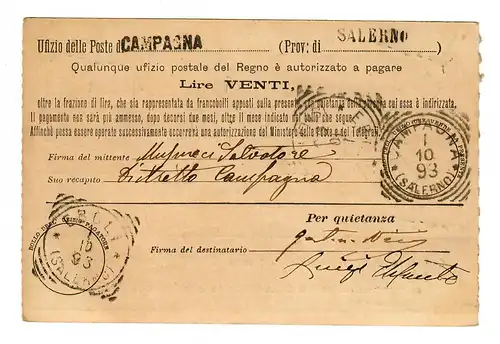 Ufizio delle Poste di CAMPAGNA (Prov: di SALERNO)
Qualunque ufizio postale del Regno è autorizzato a pagare
Lire VENTI,
oltre la frazione di lira, che sia rappresentata da francobolli apposti sulla presente, la quietanza della su essa è indirizzata.
Il pagamento non sarà più ammesso, dopo decorsi due mesi, oltre il mese indicato dal bollo che segue.
Affinchè possa essere operato successivamente occorrerà una autorizzazione del Ministero delle Poste e dei Telegrafi.
Firma del mittente Salvatore
Suo recapito Distretto Campagna
CAMPAGNA
1
10
93
(SALERNO)
EBOLI
10
93
(SALERNO)
Per quietanza
Firma del destinatario
Luigi